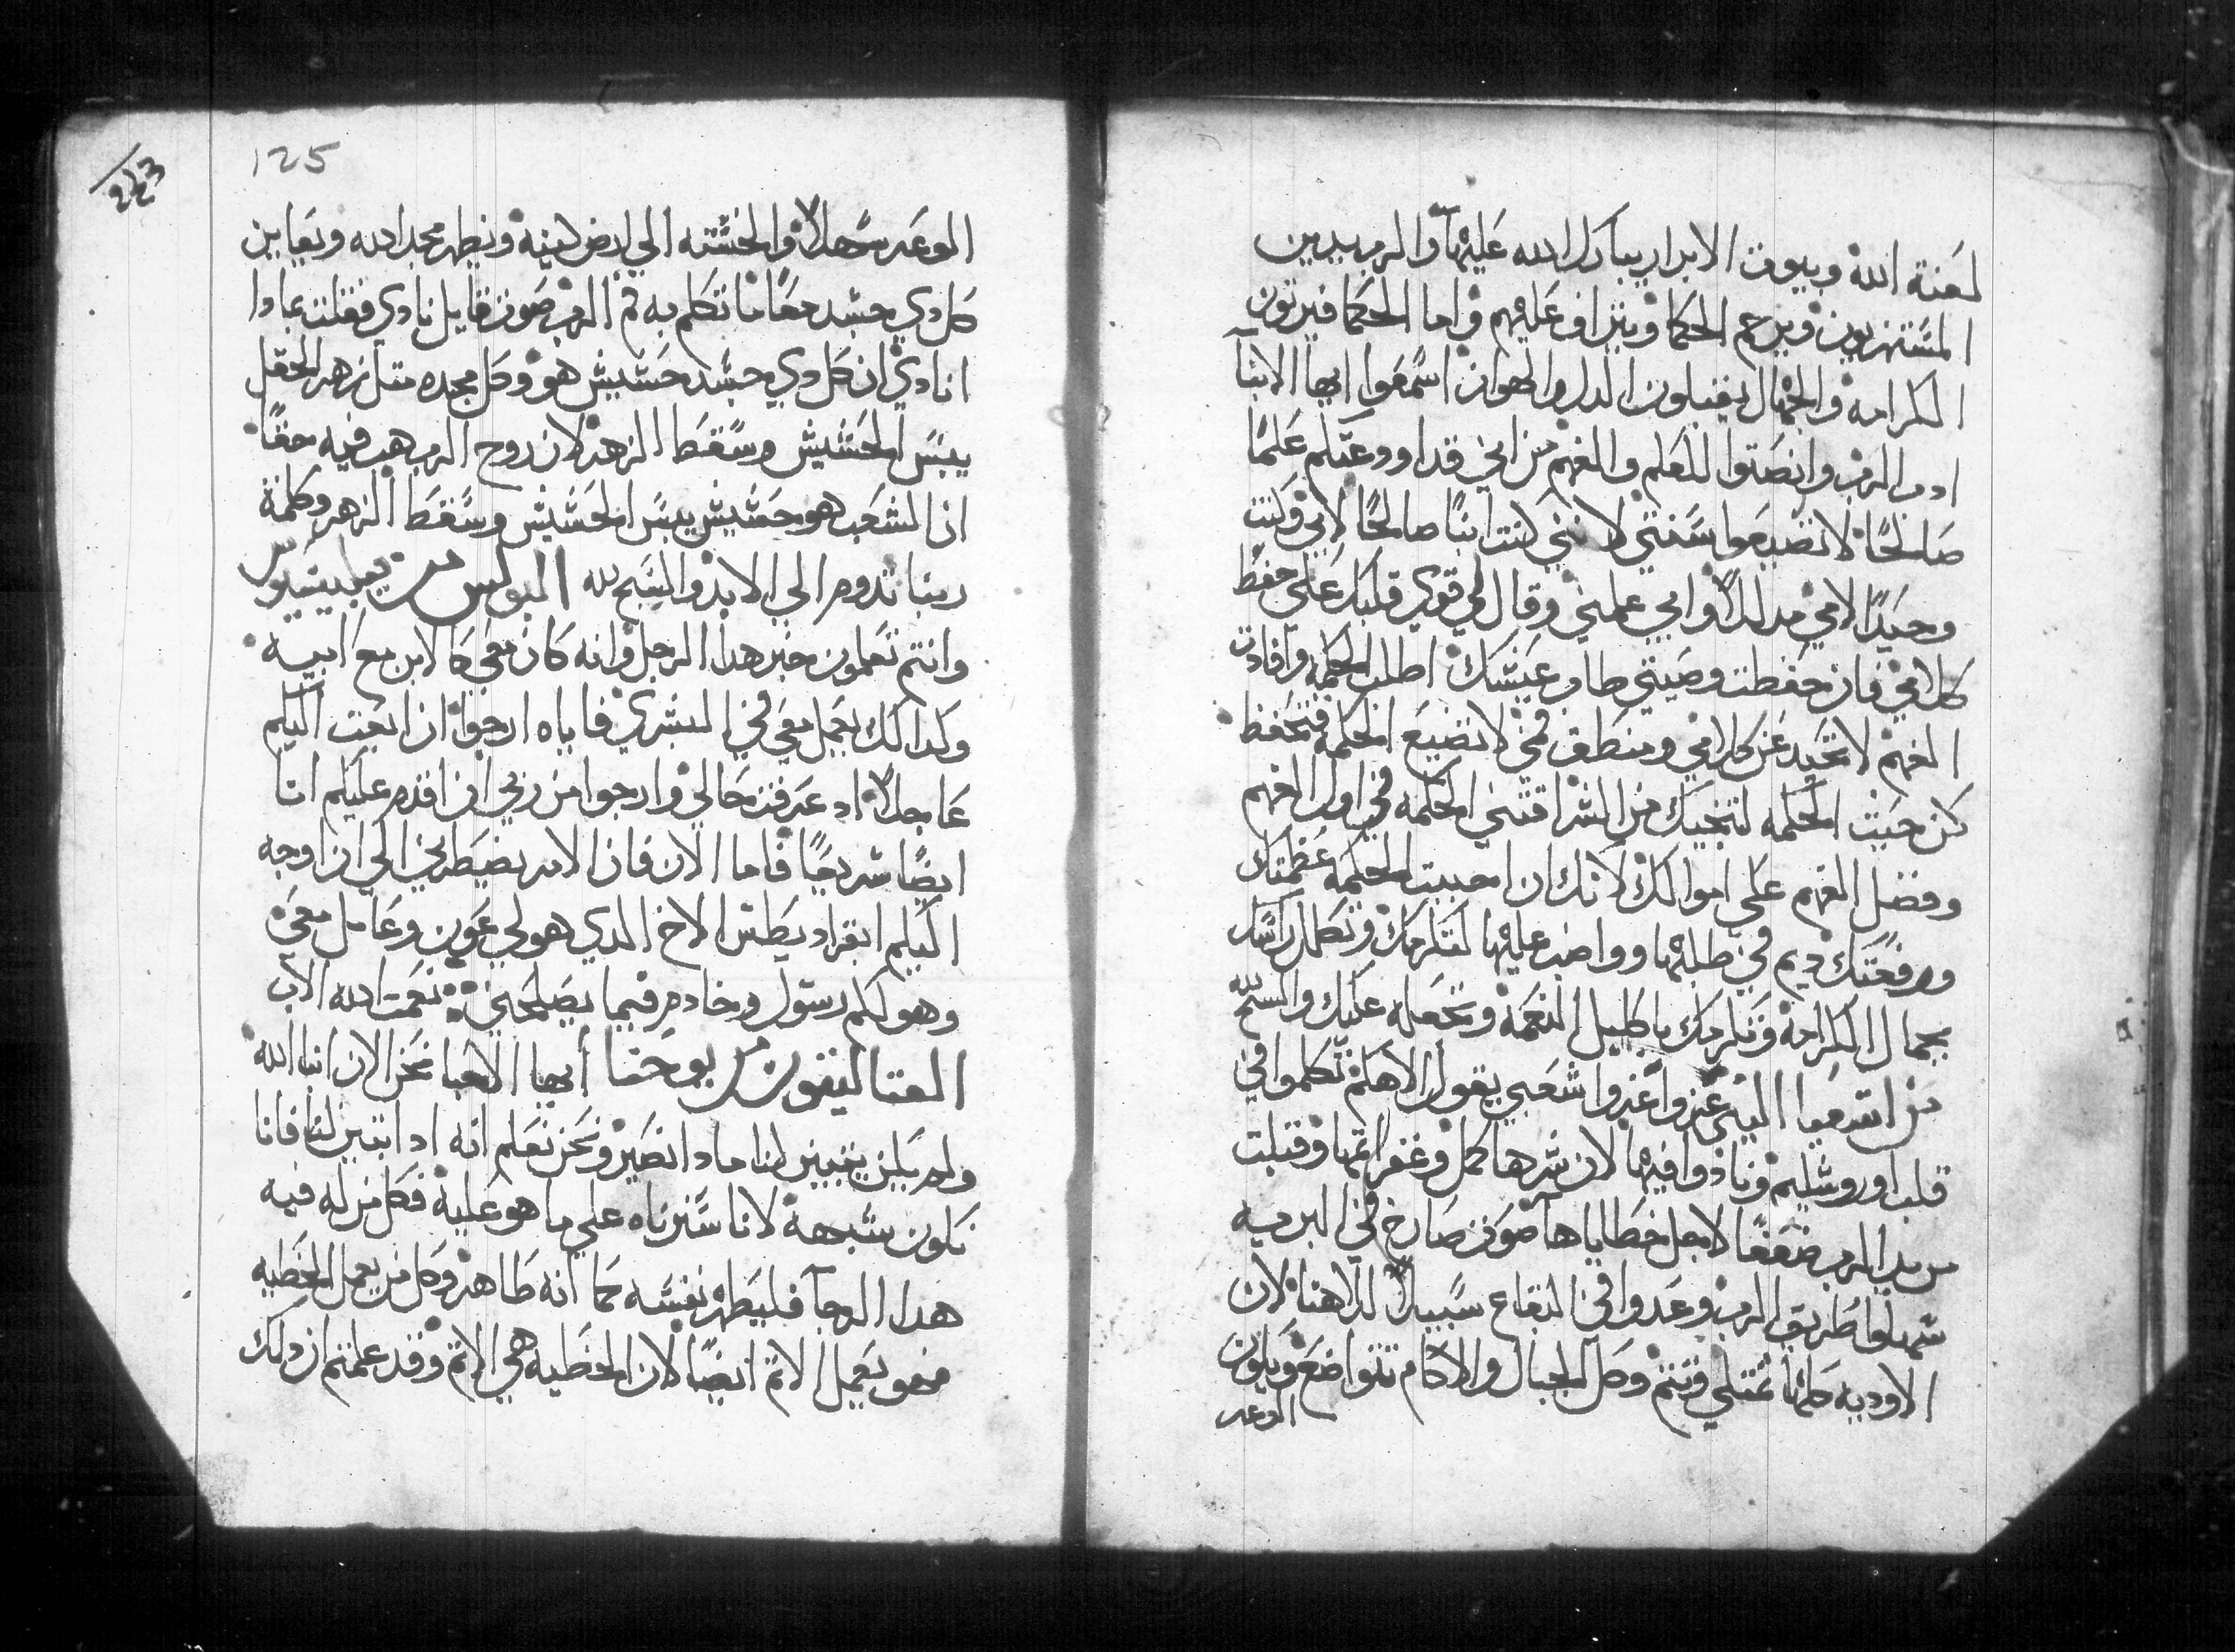 لعنة الله وبيوت الابرار يبارك الله عليها والرب يدين
المستهزيين ويرحم الحكما ويتراف عليهم واما الحكما فيرتون
الكرامه والجهال يقبلون الدل والهوان اسمعوا ايها الابنا
ادب الرب وانصتوا للعلم والفهم من اني قد اودعتكم علمًا
صالحًا لا تضيعوا سنتي لانني كنت ابنًا صالحًا لابي وكنت
وحيدًا لامي مدللاً وابي علمني وقال لي قوي قلبك على حفظ
كلامي فان حفظت وصيتي طاب عيشك اطلب الحكمه وافادت
الفهم لا تحيد عن كلامي ومنطق فمي لا تضيع الحكمه فتحفظ
كن حيث الحكمه لتنجيك من الشر اقتني الحكمه في اول الفهم
وفضل الفهم على اموالك لانك ان احببت الحكمه عظمتك
ورفعتك ديم في طلبها وواضب عليها لتكرمك وتكلل راسك
بجمال الكرامة وتكرمك باكليل النعمة وتجعله عليك والسبح لله
من اشعيا النبي عزوا عزوا شعبي يقول الاهكم تكلموا في
قلب اوروشليم ونادوا فيها لان شرها كمل وغفر اتمها وقبلت
من يد الرب ضعفًا لاجل خطاياها صوت صارخ في البريه
سهلوا طريق الرب وعدوا في البقاع سبيلاً لالاهنا لان
الاوديه كلها تمتلي وتتم وكل الجبال والاكام تتواضع ويكون
الوعر
125
223
الوعر سهلا والخشنه الي ارض لينه ويظهر مجد الله ويعاين
كل دي جسد معًا ما تكلم به فم الرب صوت قايل نادي فقلت بمادا
انادي ان كل دي جسد حشيش هو وكل مجده متل زهر الحقل
يبس الحشيش وسقط الزهر لان روح الرب هب فيه حقًا
ان الشعب هو حشيش يبس الحشيش وسقط الزهر وكلمة
ربنا تدوم الي الابد والسبح لله البولس من فيليبسيوس
وانتم تعلمون خبر هدا الرجل وانه كان معي كالابن مع ابيه
وكدالك يعمل معي في البشري فاياه ارجوا ان ابعت اليكم
عاجلاً اد عرفت حالي وارجوا من ربي ان اقدم عليكم انا
ايضًا سريعًا فاما الان فان الامر يضيطرني الي ان اوجه
اليكم ابفراديطس الاخ الدي هو لي عون وعامل معي
وهو لكم رسول وخادم فيما يصلحني نعمت الله الاب
القتاليقون من يوحنا أيها الاحبا نحن الان ابنا الله
ولم يكن يتبين لنا مادا نصير ونحن نعلم انه ادا تبين لنا فانا
نكون شبهة لانا سنراه على ما هو عليه فكل من له فيه
هدا الرجآ فليطهر نفسه كما انه طاهر وكل من يعمل الخطيه
فهو يعمل الاتم ايضًا لان الخطيه هي الاتم وقد علمتم ان دلك